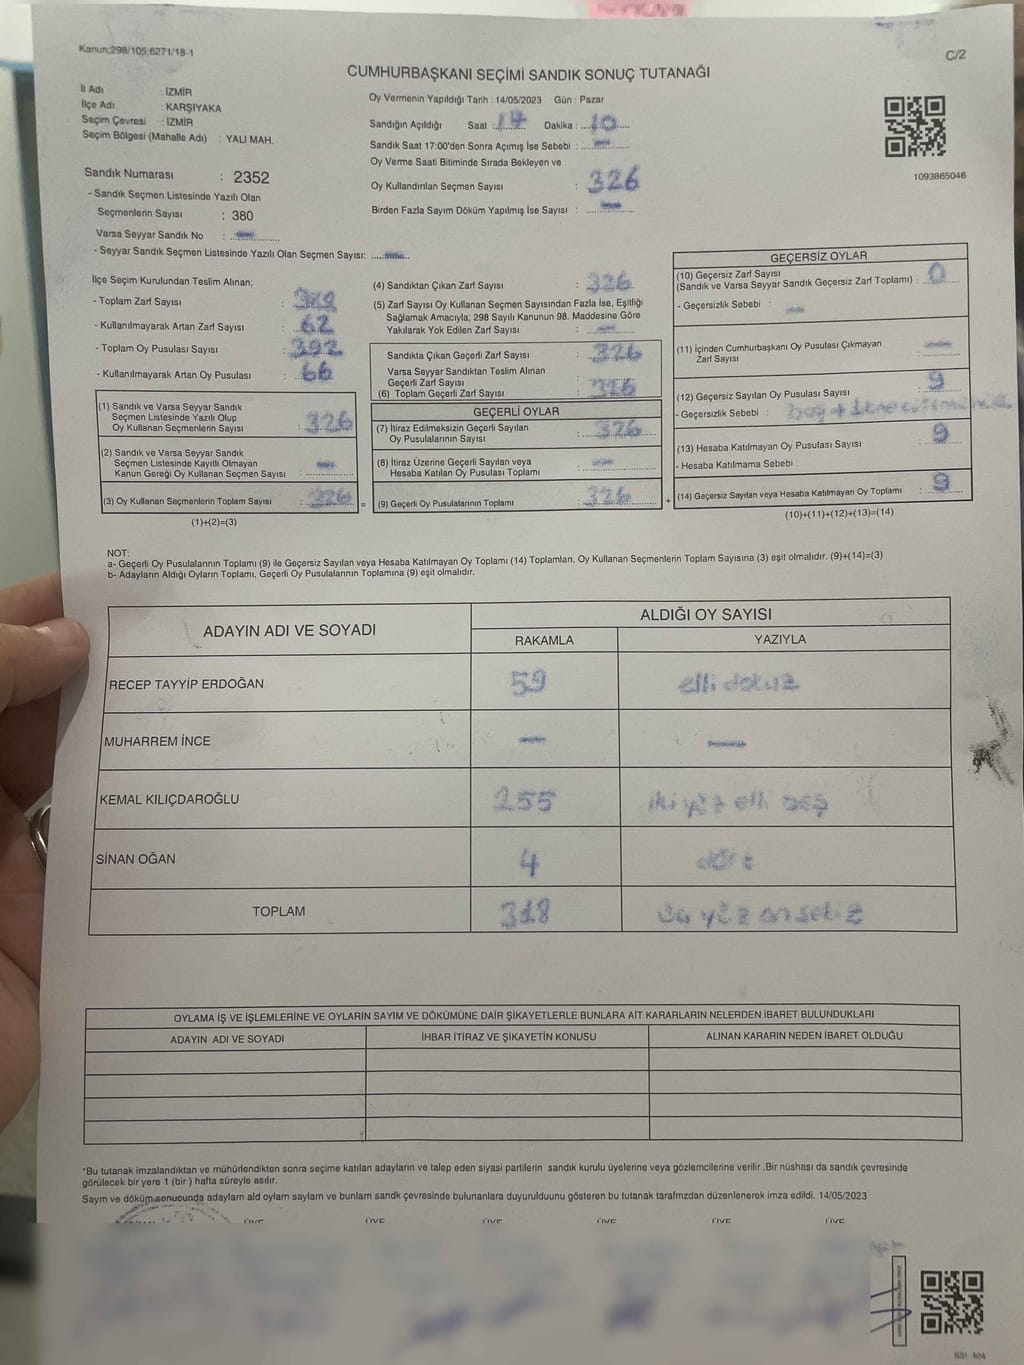 Kanun:298/105,6271/18-1
C/2
CUMHURBAŞKANI SEÇİMİ SANDIK SONUÇ TUTANAĞI
İl Adı : İZMİR
İlçe Adı : KARŞIYAKA
Seçim Çevresi : İZMİR
Seçim Bölgesi (Mahalle Adı) : YALI MAH.
Sandık Numarası : 2352
- Sandık Seçmen Listesinde Yazılı Olan
Seçmenlerin Sayısı : 380
Varsa Seyyar Sandık No : —
- Seyyar Sandık Seçmen Listesinde Yazılı Olan Seçmen Sayısı: —
Oy Vermenin Yapıldığı Tarih : 14/05/2023 Gün : Pazar
Sandığın Açıldığı Saat : 17 Dakika : 10
Sandık Saat 17:00'den Sonra Açımış İse Sebebi : —
Oy Verme Saati Bitiminde Sırada Bekleyen ve
Oy Kullandırılan Seçmen Sayısı : 326
Birden Fazla Sayım Döküm Yapılmış İse Sayısı : —
1093865046
İlçe Seçim Kurulundan Teslim Alınan;
- Toplam Zarf Sayısı :
- Kullanılmayarak Artan Zarf Sayısı : 62
- Toplam Oy Pusulası Sayısı : 392
- Kullanılmayarak Artan Oy Pusulası : 66
(1) Sandık ve Varsa Seyyar Sandık
Seçmen Listesinde Yazılı Olup
Oy Kullanan Seçmenlerin Sayısı : 326
(2) Sandık ve Varsa Seyyar Sandık
Seçmen Listesinde Kayıtlı Olmayan
Kanun Gereği Oy Kullanan Seçmen Sayısı : —
(3) Oy Kullanan Seçmenlerin Toplam Sayısı : 326
(1)+(2)=(3)
=
(4) Sandıktan Çıkan Zarf Sayısı : 326
(5) Zarf Sayısı Oy Kullanan Seçmen Sayısından Fazla İse, Eşitliği
Sağlamak Amacıyla; 298 Sayılı Kanunun 98. Maddesine Göre
Yakılarak Yok Edilen Zarf Sayısı : —
Sandıkta Çıkan Geçerli Zarf Sayısı : 326
Varsa Seyyar Sandıktan Teslim Alınan
Geçerli Zarf Sayısı :
(6) Toplam Geçerli Zarf Sayısı : 326
GEÇERLİ OYLAR
(7) İtiraz Edilmeksizin Geçerli Sayılan
Oy Pusulalarının Sayısı : 326
(8) İtiraz Üzerine Geçerli Sayılan veya
Hesaba Katılan Oy Pusulası Toplamı : —
(9) Geçerli Oy Pusulalarının Toplamı : 326
+
GEÇERSİZ OYLAR
(10) Geçersiz Zarf Sayısı
(Sandık ve Varsa Seyyar Sandık Geçersiz Zarf Toplamı) : 0
- Geçersizlik Sebebi : —
(11) İçinden Cumhurbaşkanı Oy Pusulası Çıkmayan
Zarf Sayısı : —
(12) Geçersiz Sayılan Oy Pusulası Sayısı : 9
- Geçersizlik Sebebi :
(13) Hesaba Katılmayan Oy Pusulası Sayısı : 9
- Hesaba Katılmama Sebebi :
(14) Geçersiz Sayılan veya Hesaba Katılmayan Oy Toplamı : 9
(10)+(11)+(12)+(13)=(14)
NOT:
a- Geçerli Oy Pusulalarının Toplamı (9) ile Geçersiz Sayılan veya Hesaba Katılmayan Oy Toplamı (14) Toplamları, Oy Kullanan Seçmenlerin Toplam Sayısına (3) eşit olmalıdır. (9)+(14)=(3)
b- Adayların Aldığı Oyların Toplamı, Geçerli Oy Pusulalarının Toplamına (9) eşit olmalıdır.
ADAYIN ADI VE SOYADI
ALDIĞI OY SAYISI
RAKAMLA YAZIYLA
RECEP TAYYİP ERDOĞAN 59 elli dokuz
MUHARREM İNCE — —
KEMAL KILIÇDAROĞLU 255 iki yüz elli beş
SİNAN OĞAN 4 dört
TOPLAM 318 üç yüz on sekiz
OYLAMA İŞ VE İŞLEMLERİNE VE OYLARIN SAYIM VE DÖKÜMÜNE DAİR ŞİKAYETLERLE BUNLARA AİT KARARLARIN NELERDEN İBARET BULUNDUKLARI
ADAYIN ADI VE SOYADI İHBAR İTİRAZ VE ŞİKAYETİN KONUSU ALINAN KARARIN NEDEN İBARET OLDUĞU
*Bu tutanak imzalandıktan ve mühürlendikten sonra seçime katılan adayların ve talep eden siyasi partilerin sandık kurulu üyelerine veya gözlemcilerine verilir .Bir nüshası da sandık çevresinde
görülecek bir yere 1 (bir ) hafta süreyle asılır.
Sayım ve döküm sonucunda adayların ald oyların sayların ve bunların sandk çevresinde bulunanlara duyurulduunu gösteren bu tutanak tarafmzdan düzenlenerek imza edildi. 14/05/2023
ÜYE ÜYE ÜYE ÜYE ÜYE ÜYE